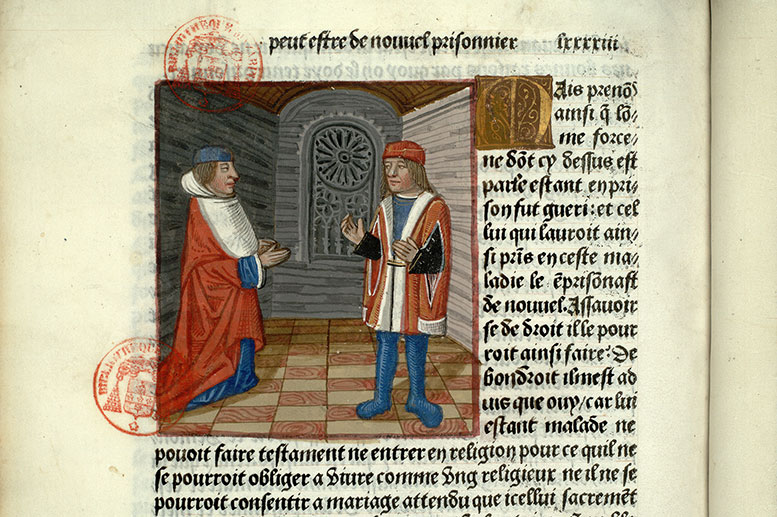 peut estre de nouuel prisonnier lxxxxiii
MAis prenõs
ainsi q̃ lõ-
me force-
ne dõt cy dessus est
parle estant en pri-
son fut gueri: et cel
lui qui lauroit ain-
si prĩs en ceste ma-
ladie le ẽprisonast
de nouuel. Assauoir
se de droit il le pour
roit ainsi faire: De
bon droit il mest ad
uis que ouy/car lui
estant malade ne
pouoit faire testament ne entrer en religion pour ce quil ne
se pourroit obliger a viure comme vng religieux ne il ne se
pourroit consentir a mariage attendu que icellui sacremẽt